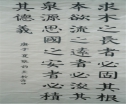 求木之長者必固其根
本欲流之遠者必浚其
泉源思國之安者必積
其德義
庚子夏